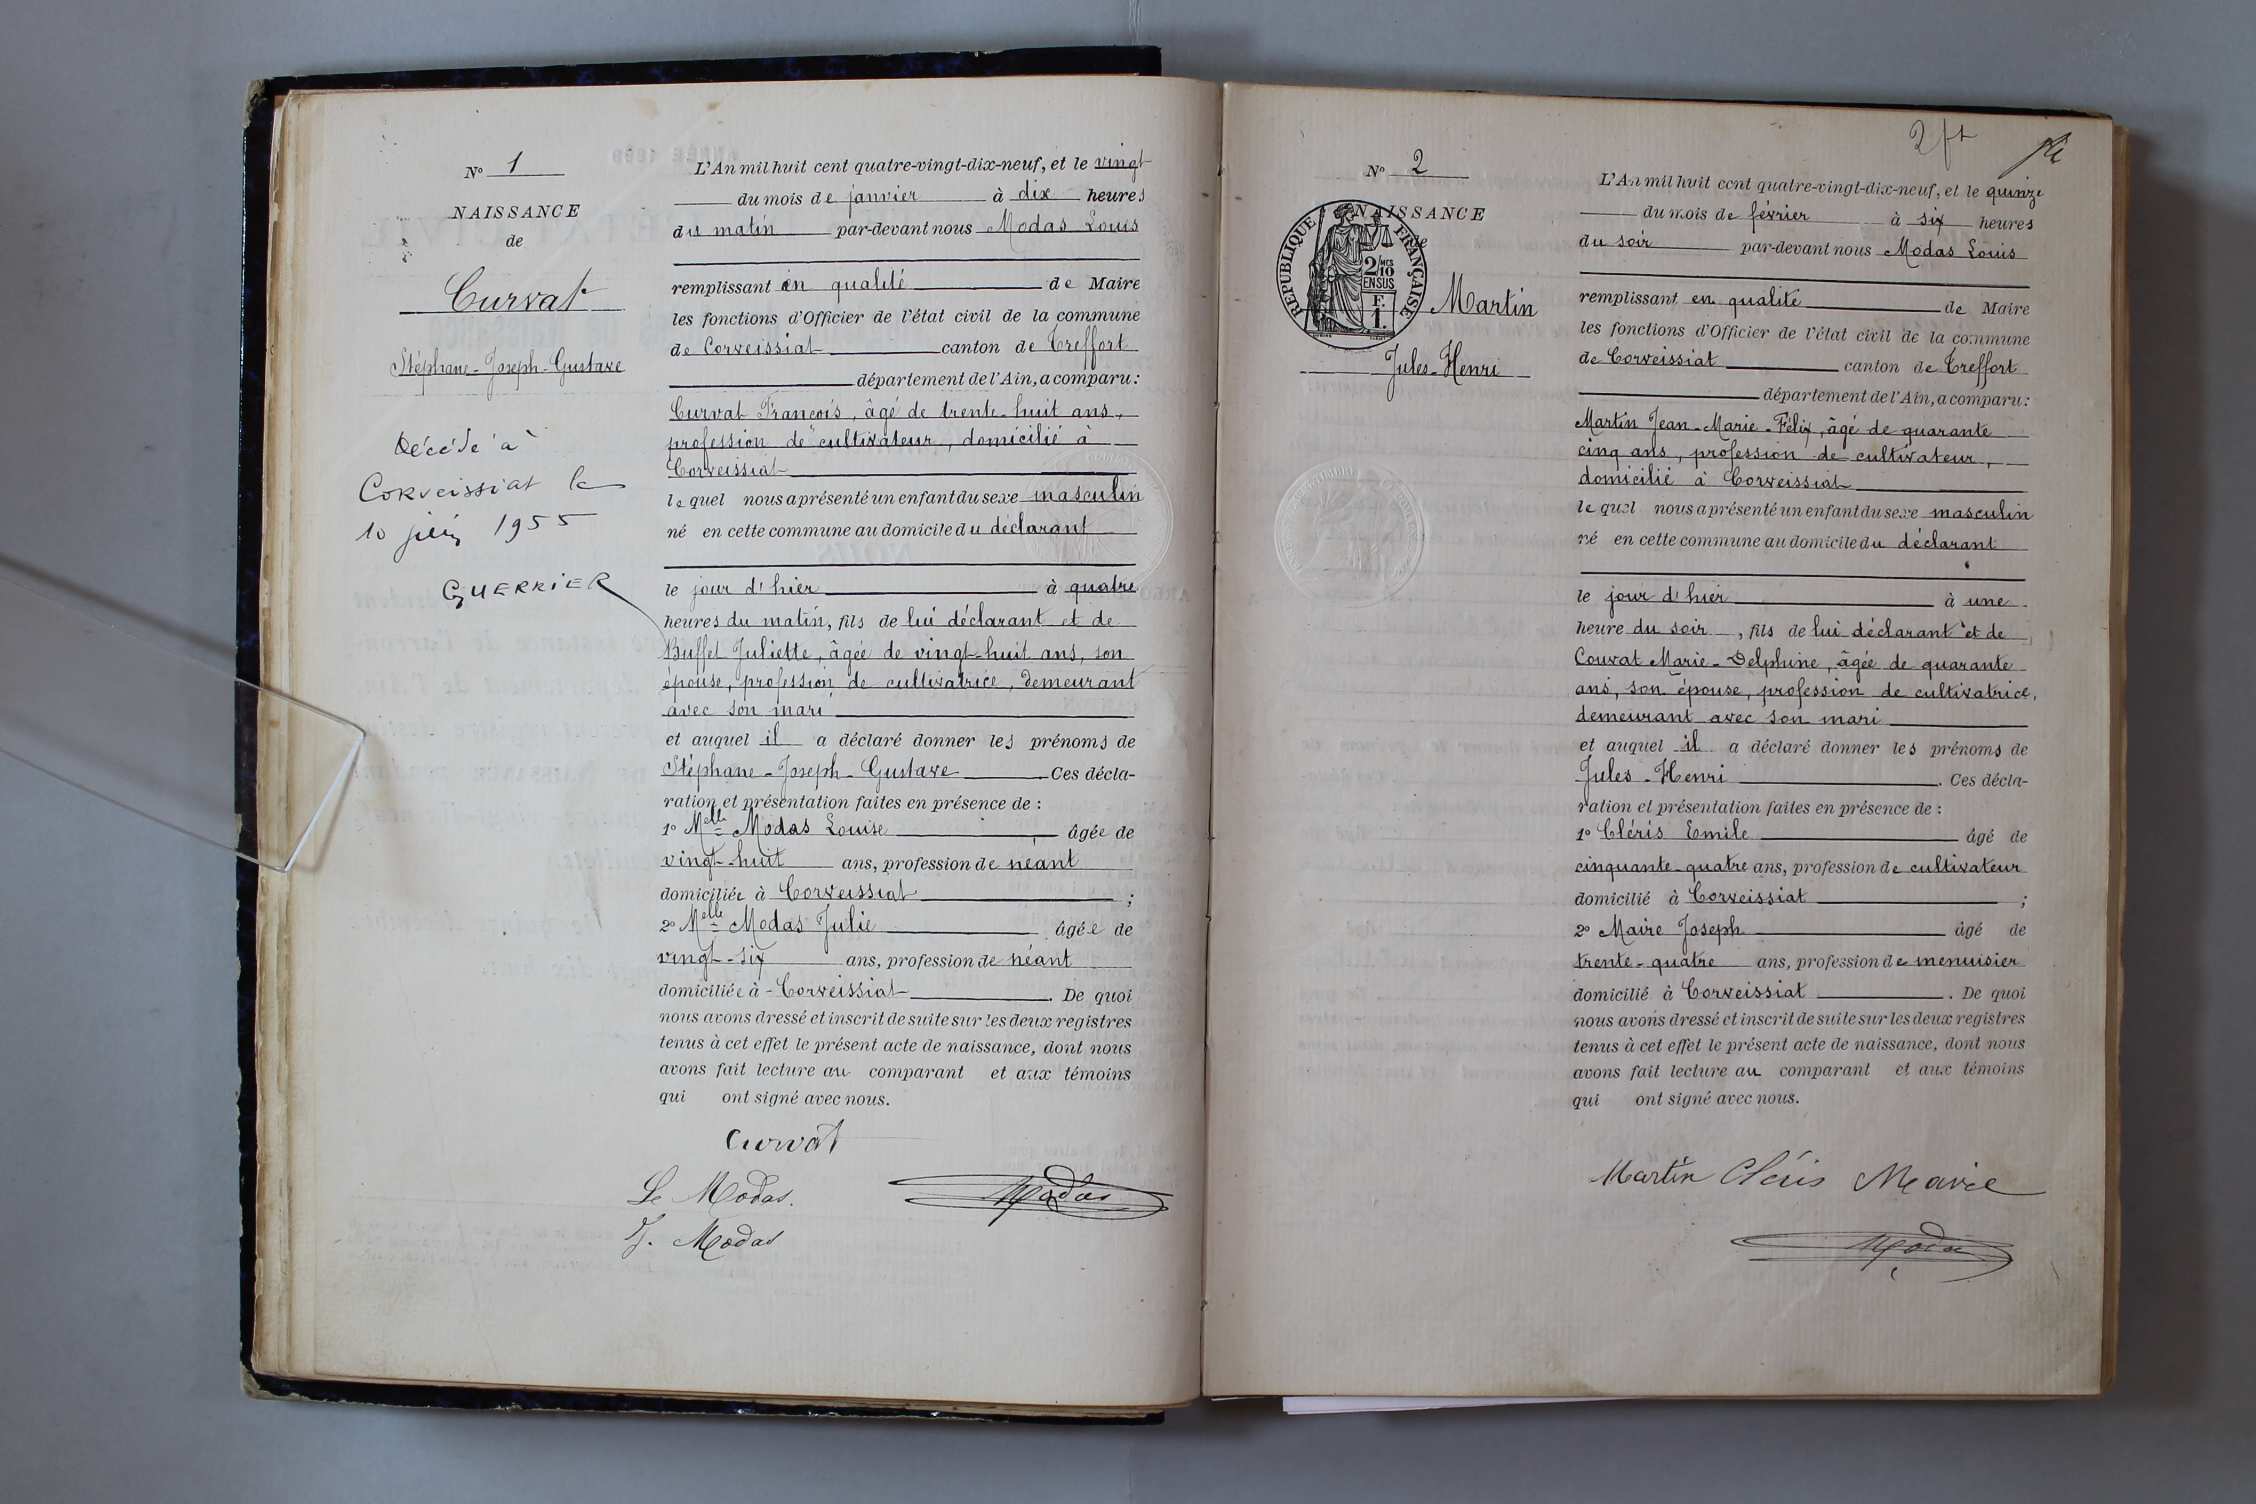 N° 1
NAISSANCE
de
Curvat
Stéphane-Joseph-Gustave
Décédé à
Corveissiat le
10 juin 1955
GUERRIER
L'An mil huit cent quatre-vingt-dix-neuf, et le vingt
du mois de janvier à dix heures
du matin par-devant nous Modas Louis
remplissant en qualité de Maire
les fonctions d'Officier de l'état civil de la commune
de Corveissiat canton de Treffort
département de l'Ain, a comparu:
Curvat François, âgé de trente-huit ans,
profession de cultivateur, domicilié à
Corveissiat
lequel nous a présenté un enfant du sexe masculin
né en cette commune au domicile du déclarant
le jour d'hier à quatre
heures du matin, fils de lui déclarant et de
Buffet Juliette, âgée de vingt-huit ans, son
épouse, profession de cultivatrice, demeurant
avec son mari
et auquel il a déclaré donner les prénoms de
Stéphane-Joseph-Gustave Ces décla-
ration et présentation faites en présence de :
1° Melle Modas Louise âgée de
vingt-huit ans, profession de néant
domiciliée à Corveissiat ;
2° Melle Modas Julie âgée de
vingt-six ans, profession de néant
domiciliée à Corveissiat . De quoi
nous avons dressé et inscrit de suite sur les deux registres
tenus à cet effet le présent acte de naissance, dont nous
avons fait lecture au comparant et aux témoins
qui ont signé avec nous.
Curvat
Le Modas.
J. Modas
Modas
2
N° 2
NAISSANCE
de
RÉPUBLIQUE FRANÇAISE
2/10
EN SUS
F.
1.
Martin
Jules-Henri
L'An mil huit cent quatre-vingt-dix-neuf, et le quinze
du mois de février à six heures
du soir par-devant nous Modas Louis
remplissant en qualité de Maire
les fonctions d'Officier de l'état civil de la commune
de Corveissiat canton de Treffort
département de l'Ain, a comparu:
Martin Jean-Marie-Félix, âgé de quarante
cinq ans, profession de cultivateur,
domicilié à Corveissiat
lequel nous a présenté un enfant du sexe masculin
né en cette commune au domicile du déclarant
le jour d'hier à une
heure du soir, fils de lui déclarant et de
Couvat Marie-Delphine, âgée de quarante
ans, son épouse, profession de cultivatrice,
demeurant avec son mari
et auquel il a déclaré donner les prénoms de
Jules-Henri . Ces décla-
ration et présentation faites en présence de :
1° Cléris Emile âgé de
cinquante-quatre ans, profession de cultivateur
domicilié à Corveissiat ;
2° Maire Joseph âgé de
trente-quatre ans, profession de menuisier
domicilié à Corveissiat . De quoi
nous avons dressé et inscrit de suite sur les deux registres
tenus à cet effet le présent acte de naissance, dont nous
avons fait lecture au comparant et aux témoins
qui ont signé avec nous.
Martin Cléris Maire
Modas